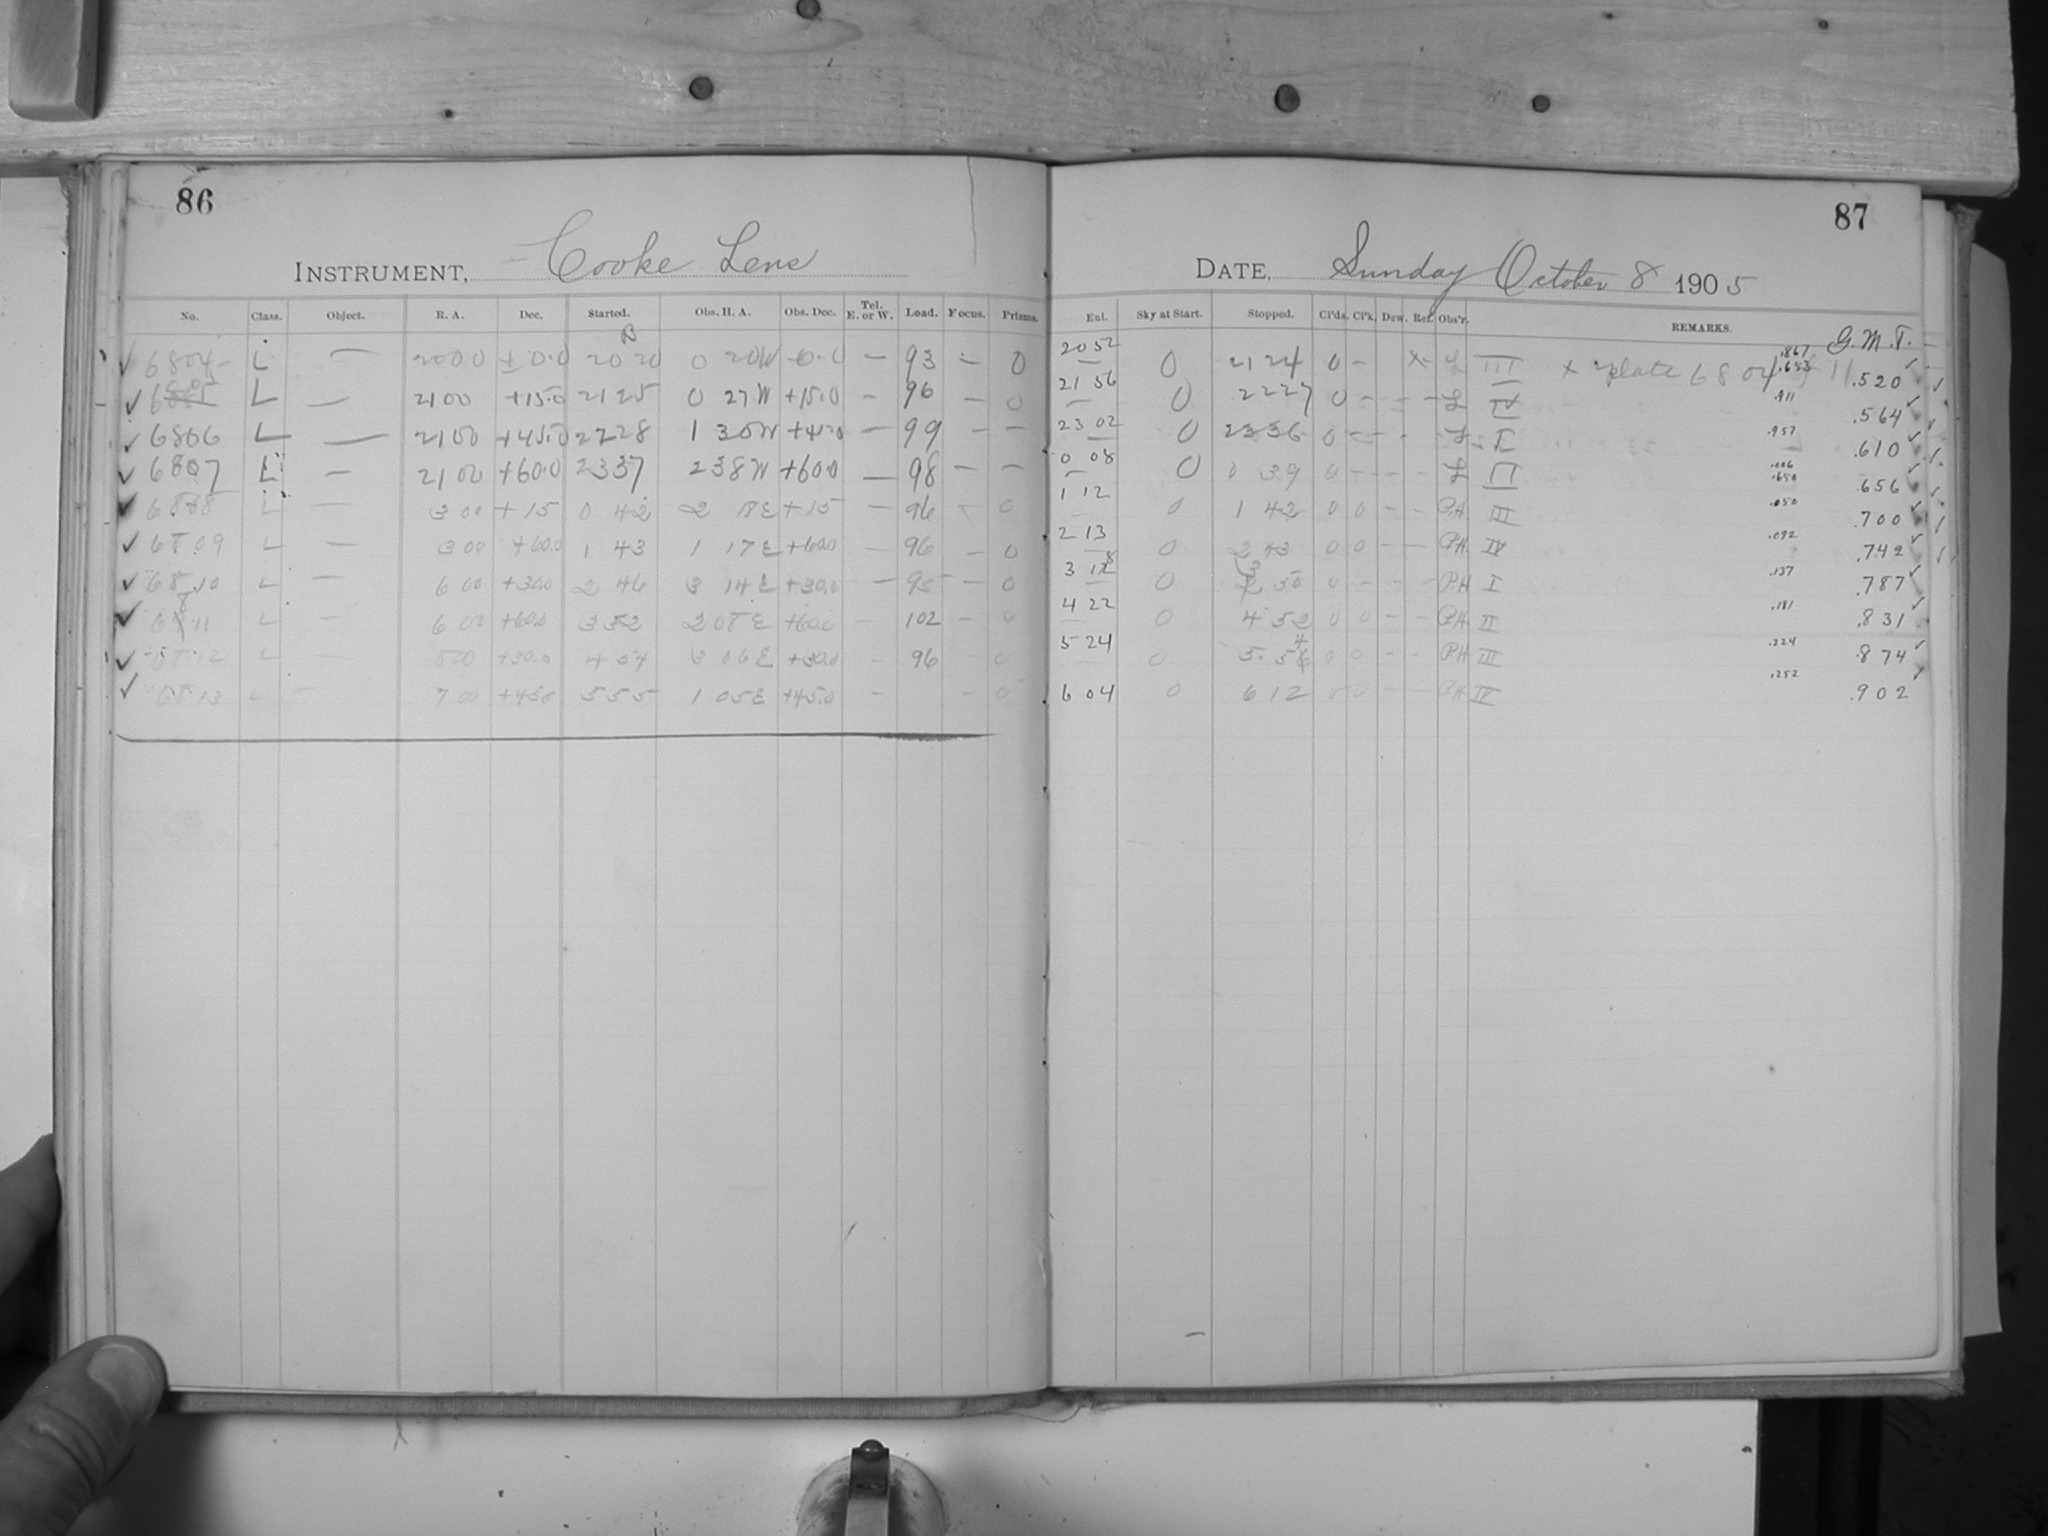 86
INSTRUMENT, Cooke Lens
No. Class. Object. R. A. Dec. Started. Obs. H. A. Obs. Dec. Tel. E. or W. Load. Focus. Prisms.
6804 L — 20 00 ± 0.0 20 20 0 20W 0.0 — 93 — 0
6805 L — 21 00 +15.0 21 25 0 27W +15.0 — 96 — 0
6806 L — 21 00 +45.0 22 28 1 30W +45.0 — 99 — —
6807 L — 21 00 +60.0 23 37 2 38W +60.0 — 98 — —
6808 L — 3 00 +15 0 42 2 18E +15 — 96 — 0
6809 L — 3 00 +60.0 1 43 1 17E +60.0 — 96 — 0
6810 L — 6 00 +30.0 2 46 3 14E +30.0 — 95 — 0
6811 L — 6 00 +60.0 3 52 2 08E +60.0 — 102 — 0
6812 L — 8 00 +30.0 4 54 3 06E +30.0 — 96 — 0
6813 L — 7 00 +45.0 5 55 1 05E +45.0 — — 0
87
DATE, Sunday October 8 1905
Ent. Sky at Start. Stopped. Cl'ds. Cl'k. Dew. Ref. Obs'r. REMARKS. G.M.T.
20 52 0 21 24 0 — × L III × plate 6804 .867 .653 .520
21 56 0 22 27 0 — — — L IV .911 .564
23 02 0 23 36 0 — — — L I .957 .610
0 08 0 0 39 0 — — — L II .006 .650 .656
1 12 0 1 42 0 0 — — P.H. III .050 .700
2 13 0 2 43 0 0 — — P.H. IV .092 .742
3 18 0 3 50 0 — — — P.H I .137 .787
4 22 0 4 52 0 0 — — P.H II .181 .831
5 24 0 5 54 0 0 — — P.H III .224 .874
6 04 0 6 12 0 0 — — P.H IV .252 .902